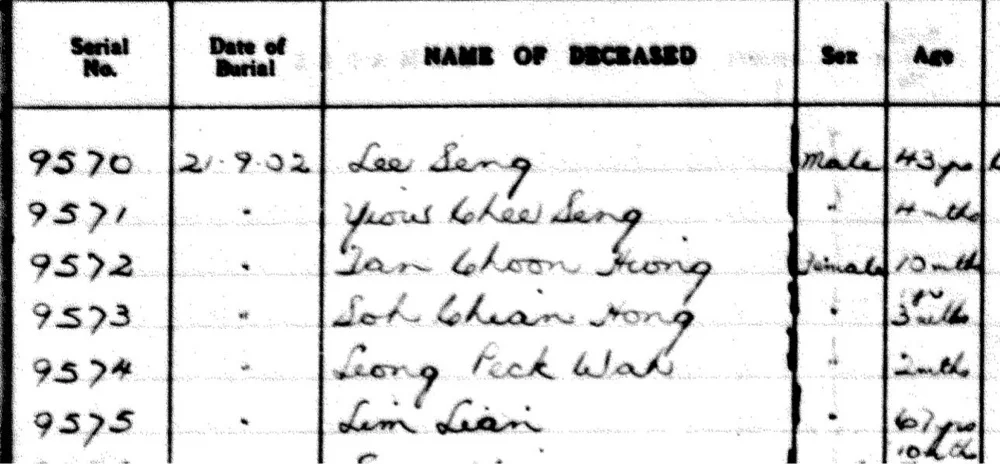 Serial No. Date of Burial NAME OF DECEASED Sex Age
9570 21.9.02 Lee Seng Male 43 yrs
9571 " Chee Seng " 4 mths
9572 " Tan Choon Hiong Female 10 mths
9573 " Soh Chian Hong " 3
9574 " Leong Peck Wah " 2 mths
9575 " Lim Lian " 67 yrs
10 mths